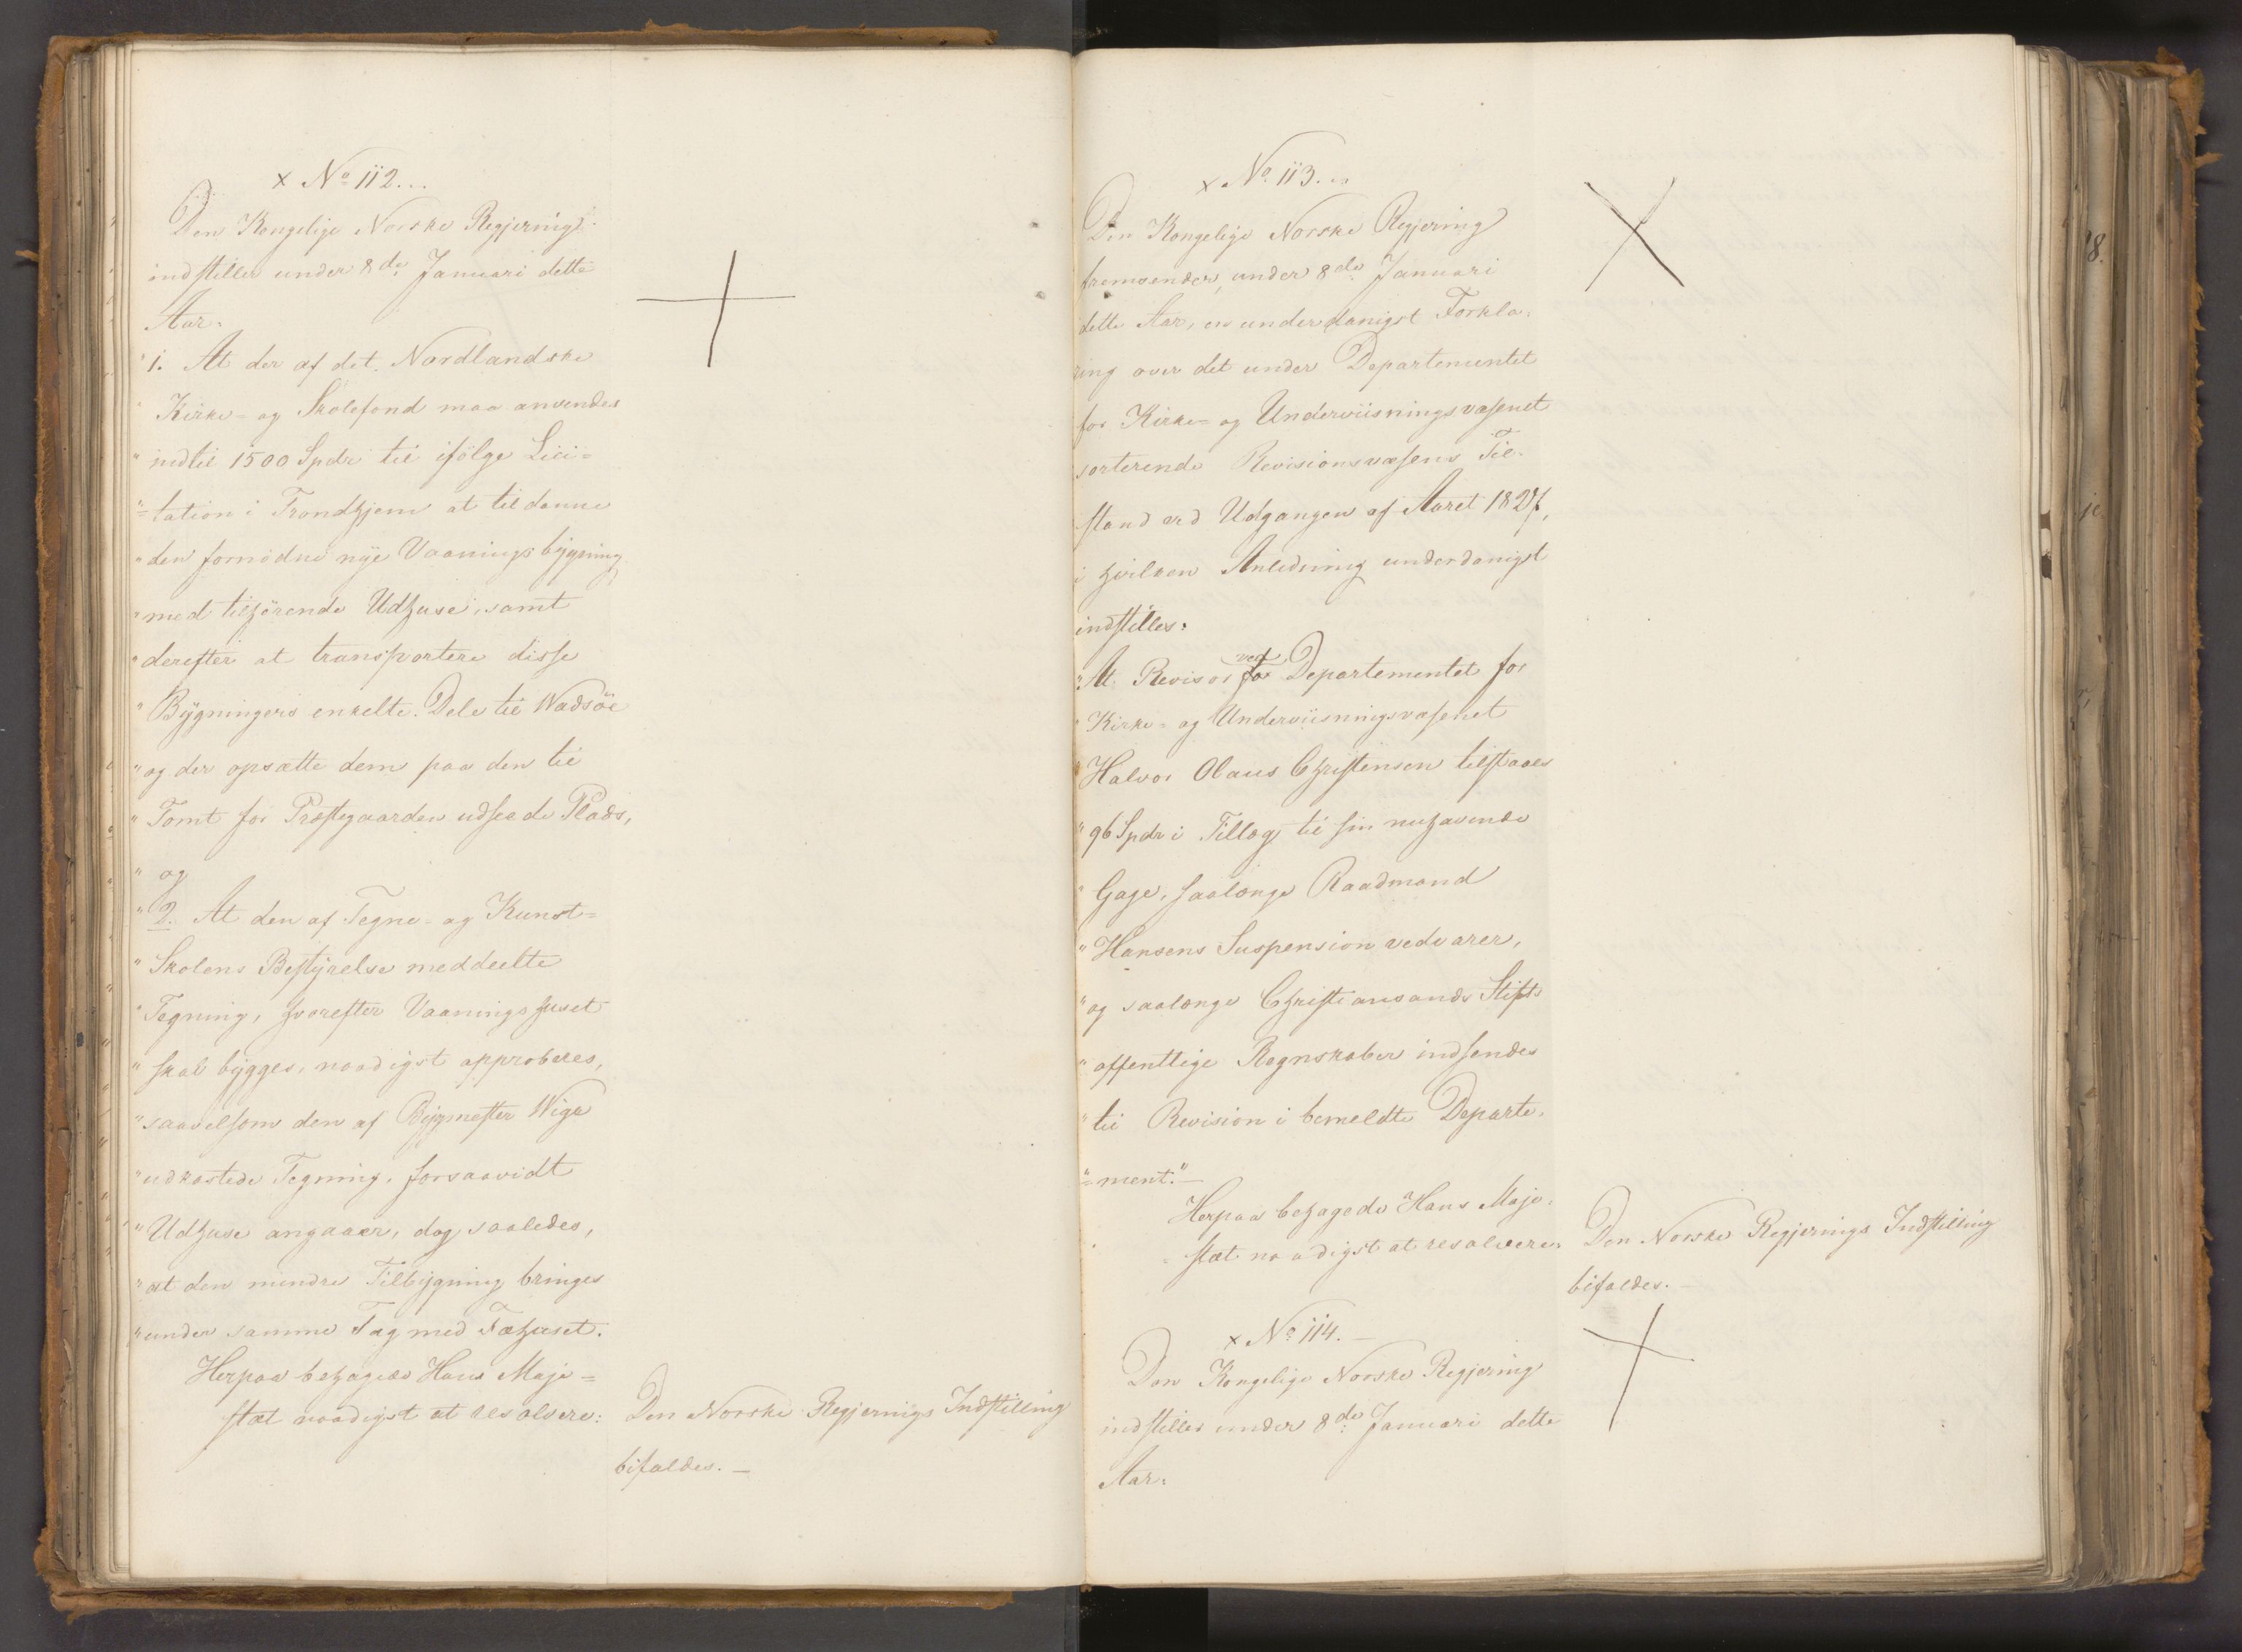 x No 112...
Den Kongelige Norske Regjering
indstiller under 8de Januari dette
Aar:
"1. At der af det Nordlandske
" Kirke- og Skolefond maa anvendes
" indtil 1500 Spdr til ifölge Lici=
"=tation i Trondhjem at tildanne
" den fornödne nye Vaaningsbÿgning
" med tilhörende Udhuse, samt
" derefter at transportere disse
" Bÿgningers enkelte Dele til Wadsöe
" og der opsætte dem paa den til
" Tomt for Præstegaarden udseede Plads,
" og
" 2. At den af Tegne- og Kunst=
" Skolens Bestÿrelse meddeelte
" Tegning, hvorefter Vaaningshuset
" skal bÿgges, naadigst approberes,
" saavelsom den af Bÿgmester Wige
" udkastede Tegning, forsaavidt
" Udhuse angaaer, dog saaledes,
" at den mindre Tilbÿgning bringes
" under samme Tag med Fæhuset.
Herpaa behagede Hans Maje=
stæt naadigst at resolvere:
Den Norske Regjerings Indstilling
bifaldes. —
x No. 113...
Den Kongelige Norske Regjering
fremsender, under 8de Januari
dette Aar, en underdanigst Forkla=
ring over det under Departementet
for Kirke- og Underviisningsvæsenet
sorterende Revisionsvæsens Til=
stand ved Udgangen af Aaret 1827,
i hvilken Anledning underdanigst
indstilles:
" At Revisor for ved Departementet for
" Kirke- og Underviisningsvæsenet
" Halvor Olaus Christensen tilstaaes
" 96 Spdr i Tillæg til sin nuhavende
" Gage, saalænge Raadmand
" Hansens Suspension vedvarer,
" og saalænge Christiansands Stifts
" offentlige Regnskaber indsendes
" til Revision i bemeldte Departe=
"=ment." —
Herpaa behagede Hans Maje=
stæt naadigst at resolvere:
Den Norske Regjerings Indstilling
bifaldes. —
x No 114. —
Den Kongelige Norske Regjering
indstiller under 8de Januari dette
Aar: